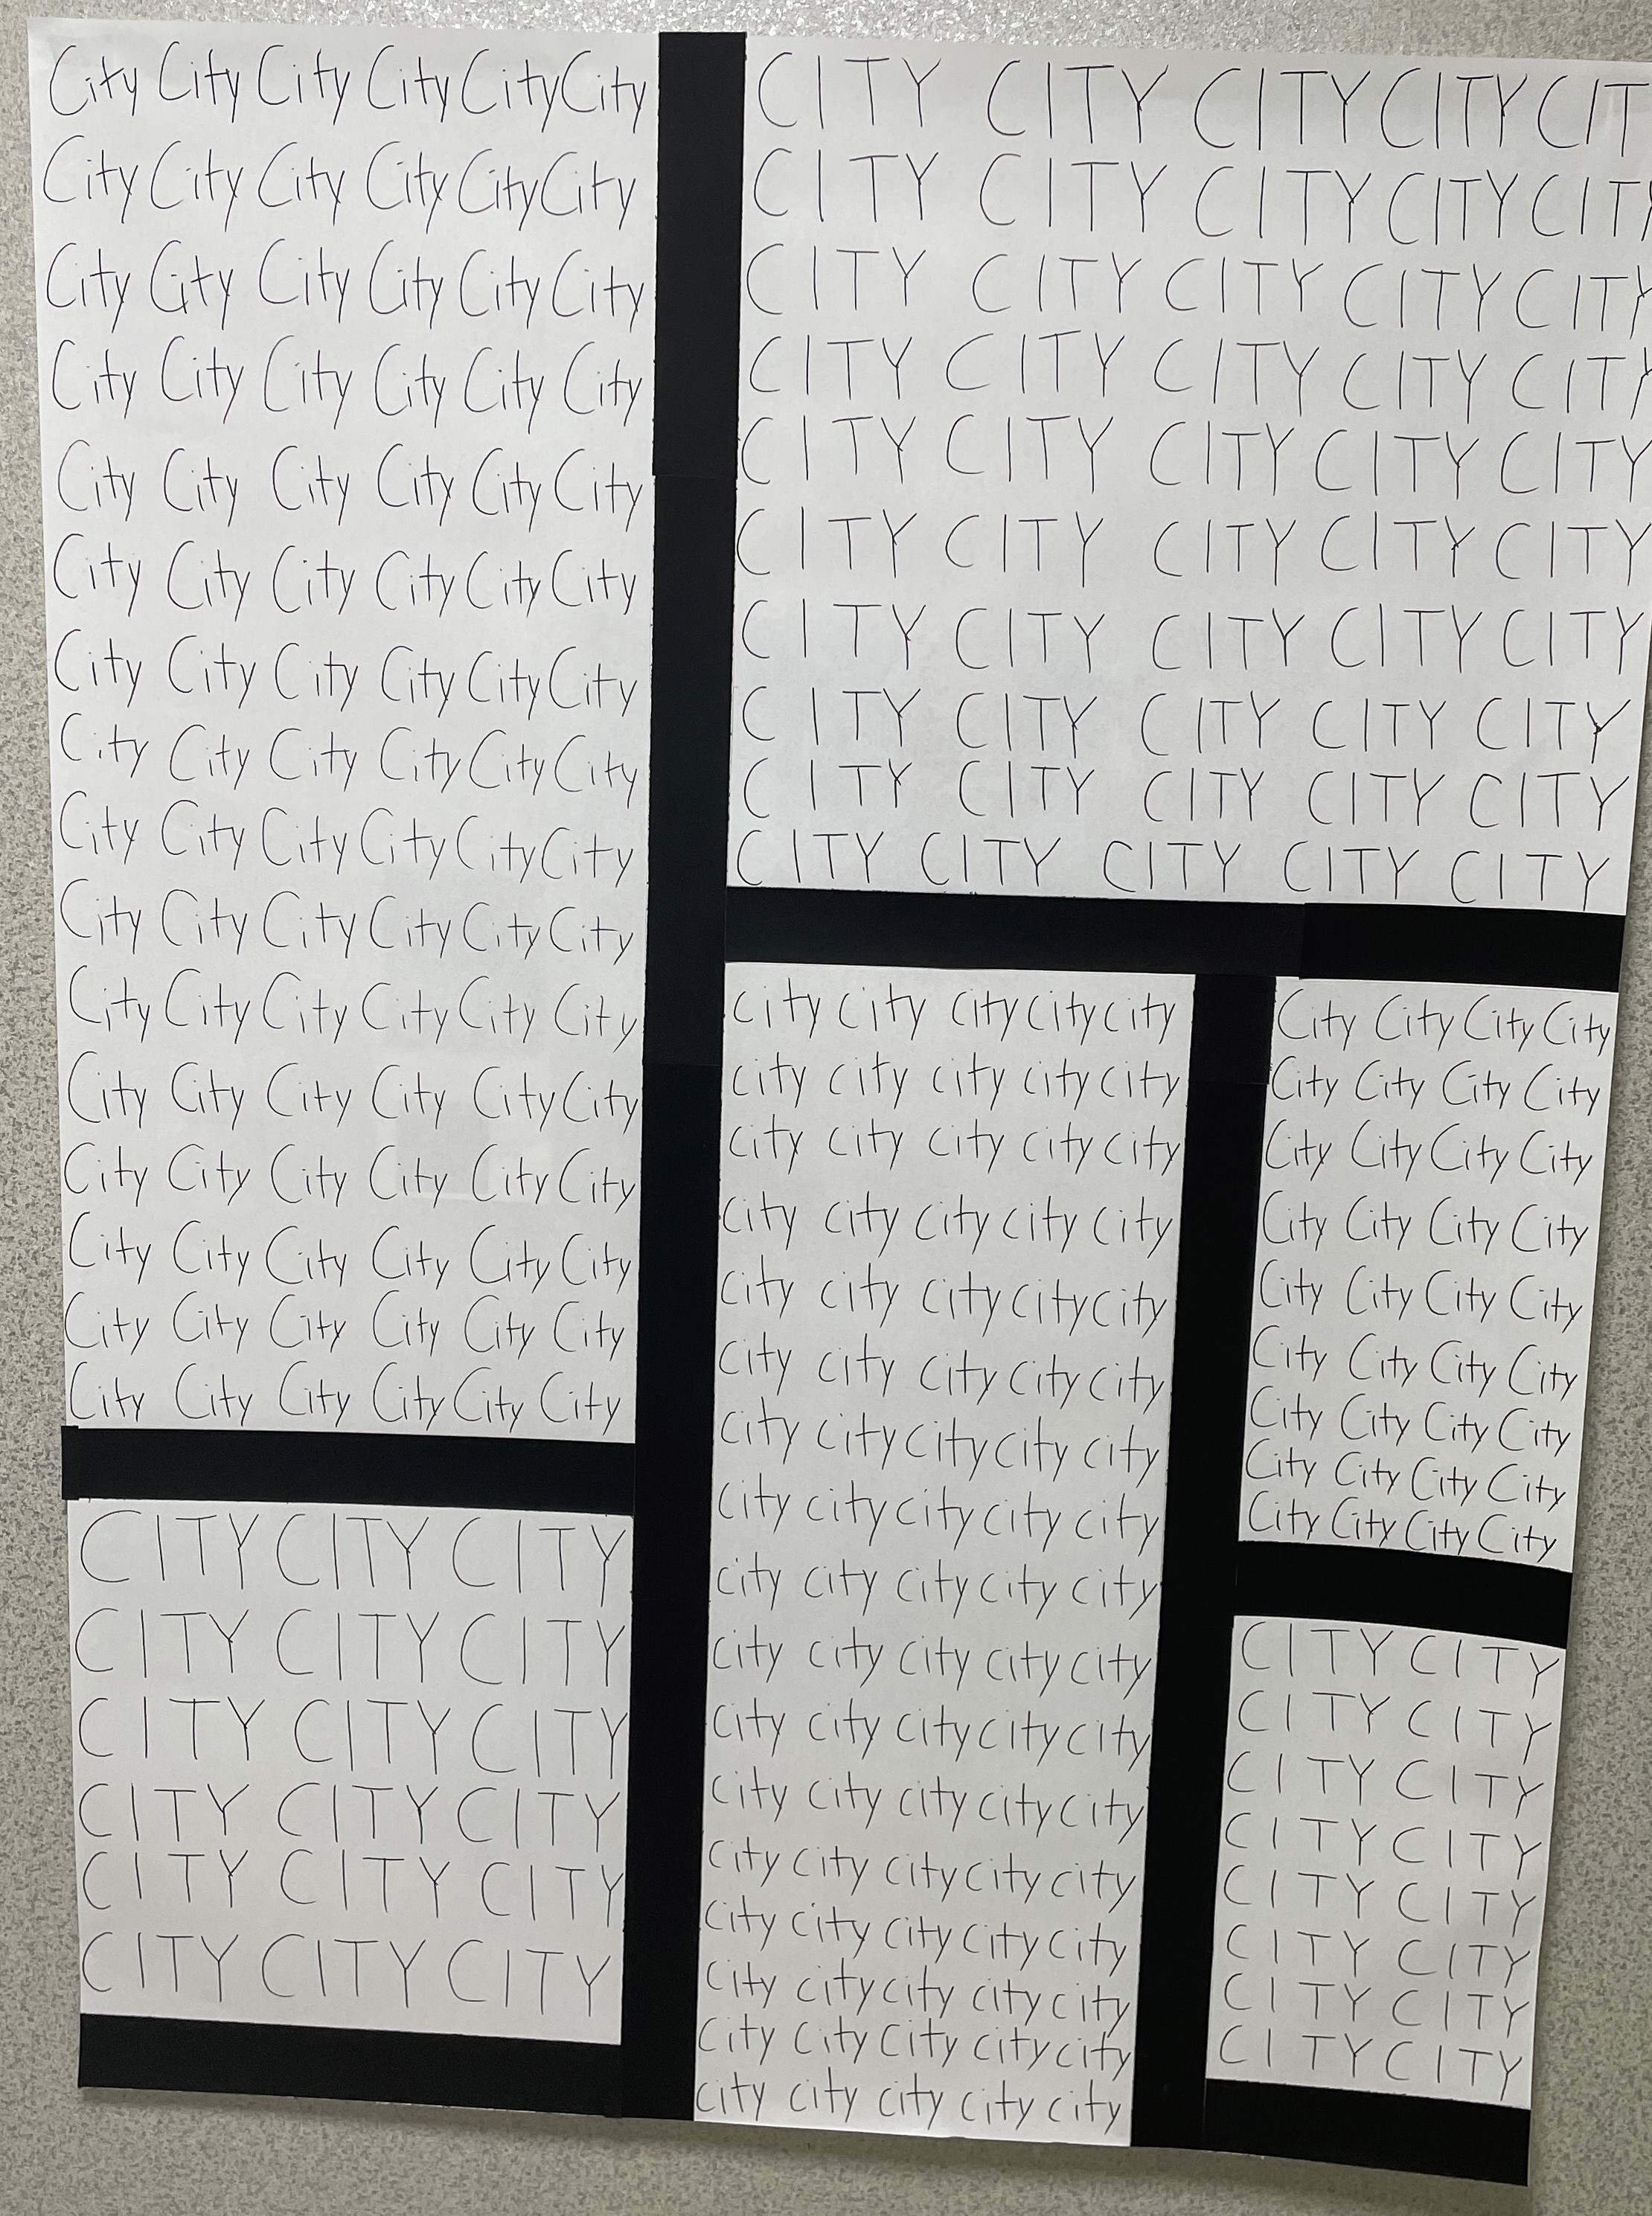 City City City City City City
City City City City City City
City City City City City City
City City City City City City
City City City City City City
City City City City City City
City City City City City City
City City City City City City
City City City City City City
City City City City City City
City City City City City City
City City City City City City
City City City City City City
City City City City City City
City City City City City City
City City City City City City
CITY CITY CITY
CITY CITY CITY
CITY CITY CITY
CITY CITY CITY
CITY CITY CITY
CITY CITY CITY
CITY CITY CITY CITY CIT
CITY CITY CITY CITY CITY
CITY CITY CITY CITY CITY
CITY CITY CITY CITY CITY
CITY CITY CITY CITY CITY
CITY CITY CITY CITY CITY
CITY CITY CITY CITY CITY
CITY CITY CITY CITY CITY
CITY CITY CITY CITY CITY
CITY CITY CITY CITY CITY
city city city city city
city city city city city
city city city city city
city city city city city
city city city city city
city city city city city
city city city city city
city city city city city
city city city city city
city city city city city
city city city city city
city city city city city
city city city city city
city city city city city
city city city city city
city city city city city
city city city city city
City City City City
City City City City
City City City City
City City City City
City City City City
City City City City
City City City City
City City City City
City City City City
CITY CITY
CITY CITY
CITY CITY
CITY CITY
CITY CITY
CITY CITY
CITY CITY
CITY CITY